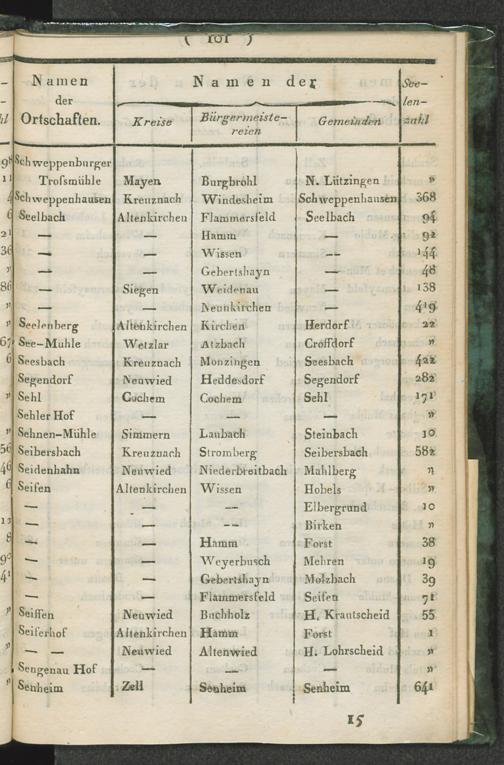 ( 101 )
Namen der Ortschaften. | Namen der Kreise | Bürgermeiste-reien | Gemeinden | See-len-zahl
Schweppenburger
Trofsmühle | Mayen | Burgbrohl | N. Lützingen | "
Schweppenhausen | Kreuznach | Windesheim | Schweppenhausen | 368
Seelbach | Altenkirchen | Flammersfeld | Seelbach | 94
— | — | Hamm | — | 92
— | — | Wissen | — | 144
— | — | Gebertshayn | — | 48
— | Siegen | Weidenau | — | 138
— | — | Neunkirchen | — | 419
Seelenberg | Altenkirchen | Kirchen | Herdorf | 22
See-Muhle | Wetzlar | Atzbach | Croffdorf | "
Seesbach | Kreuznach | Monzingen | Seesbach | 422
Segendorf | Neuwied | Heddesdorf | Segendorf | 282
Sehl | Cochem | Cochem | Sehl | 171
Sehler Hof | — | — | — | "
Sehnen-Mühle | Simmern | Laubach | Steinbach | 10
Seibersbach | Kreuznach | Stromberg | Seibersbach | 582
Seidenhahn | Neuwied | Niederbreitbach | Mahlberg | "
Seifen | Altenkirchen | Wissen | Hobels | "
— | — | — | Elbergrund | 10
— | — | — | Birken | "
— | — | Hamm | Forst | 38
— | — | Weyerbusch | Mehren | 19
— | — | Gebertshayn | Molzbach | 39
— | — | Flammersfeld | Seifen | 71
Seiffen | Neuwied | Buchholz | H. Krautscheid | 55
Seiferhof | Altenkirchen | Hamm | Forst | 1
— — | Neuwied | Altenwied | H. Lohrscheid | "
Sengenau Hof | — | — | — | "
Senheim | Zell | Senheim | Senheim | 641
15